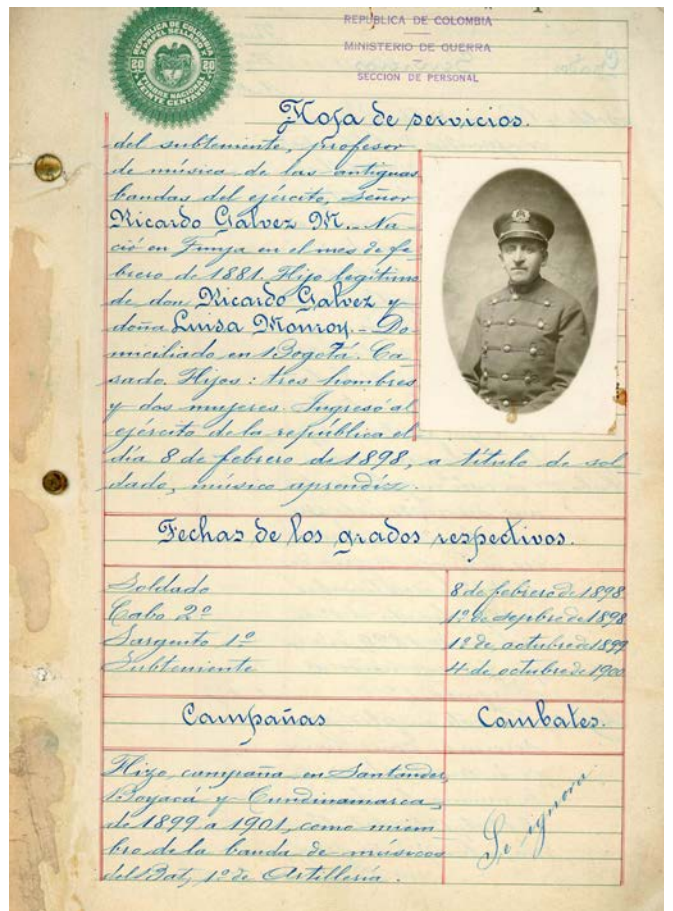 REPUBLICA DE COLOMBIA
MINISTERIO DE GUERRA
SECCION DE PERSONAL
REPUBLICA DE COLOMBIA
PAPEL SELLADO
20 20
TIMBRE NACIONAL
VEINTE CENTAVOS
Hoja de servicios.
del subteniente, profesor
de música de las antiguas
bandas del ejército, señor
Ricardo Galvez M. - Na-
ció en Tunja en el mes de fe-
brero de 1881. Hijo legítimo
de don Ricardo Galvez y
doña Luisa Monroy. - Do
miciliado en Bogotá. Ca-
sado. Hijos: tres hombres
y dos mujeres. Ingresó al
ejército de la república el
día 8 de febrero de 1898, a título de sol-
dado, músico aprendiz.
Fechas de los grados respectivos.
Soldado 8 de febrero de 1898
Cabo 2º 1º de sepbre de 1898
Sargento 1º 1º de octubre de 1899
Subteniente 4 de octubre de 1900
Campañas Combates.
Hizo campaña en Santander,
Boyacá y Cundinamarca,
de 1899 a 1901, como miem
bro de la banda de músicos
del Bat. 1º de Artillería.
Se ignora